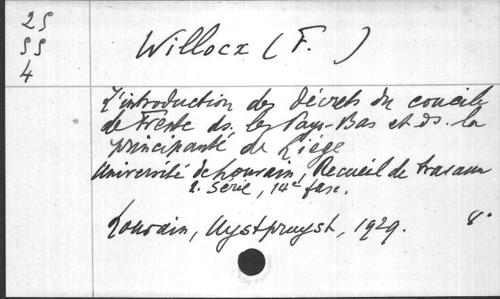 25
55
4
Willocx (F. )
L'introduction des Décrets du concile
de Trente ds. les Pays-Bas et ds. la
principauté de Liége
Université de Louvain, Recueil de travaux
2. Série, 14e fasc.
Louvain, Uystpruyst, 1929. 8°